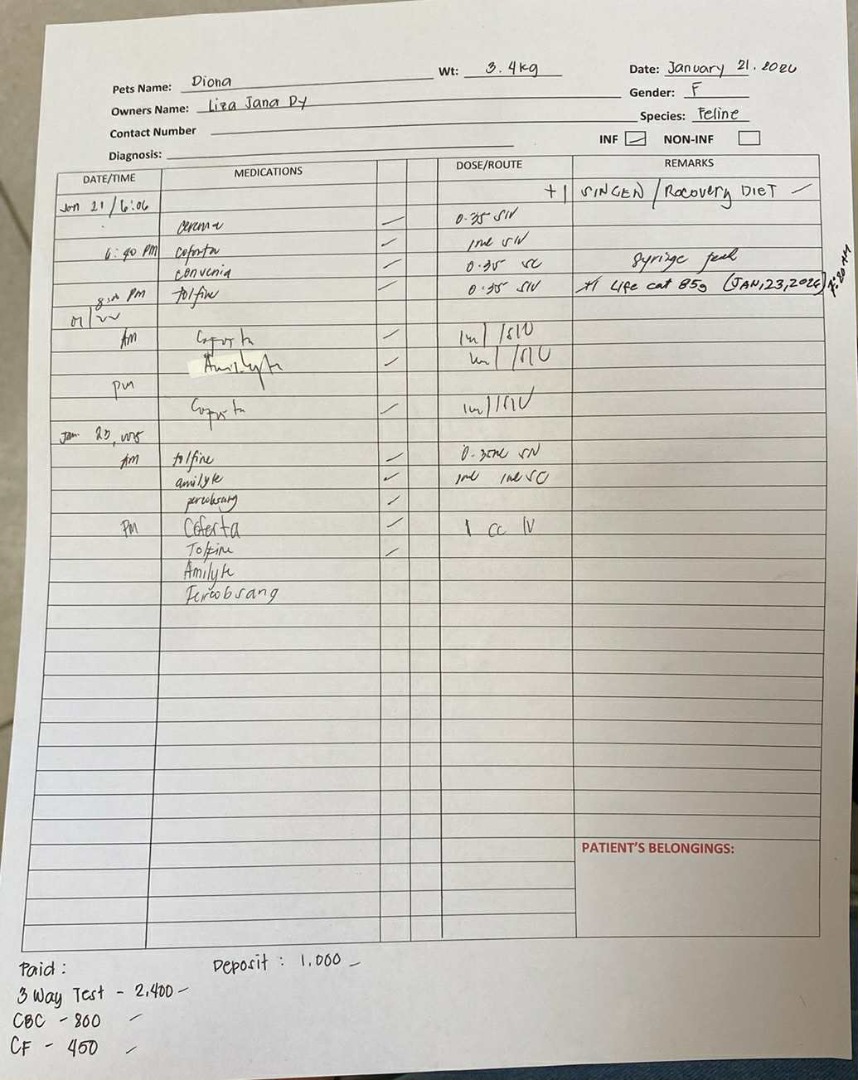 Pets Name: Diona Wt: 3.4kg Date: January 21. 2026
Owners Name: Liza Jana Dy Gender: F
Contact Number Species: Feline
Diagnosis: INF NON-INF
DATE/TIME MEDICATIONS DOSE/ROUTE REMARKS
Jan 21/6:06 +1 SINGEN/Recovery DIET
0.35 SIV
6:40 PM coforta 1ml SIV
convenia 0.35 SC syringe feed
PM tolfine 0.35 SIV +1 Life cat 85g (JAN,23,2026)
01/22
AM Coforta 1ml/SIV
Amilyte 1ml/SIV
pm
Coforta 1ml/SIV
Jan 23,
AM tolfine 0.35ml SIV
amilyte 1ml
PM Coforta 1 CC IV
Tolfine
Amilyte
Fercobsang
PATIENT'S BELONGINGS:
Paid: Deposit: 1,000
3 Way Test - 2,400
CBC - 800
CF - 450